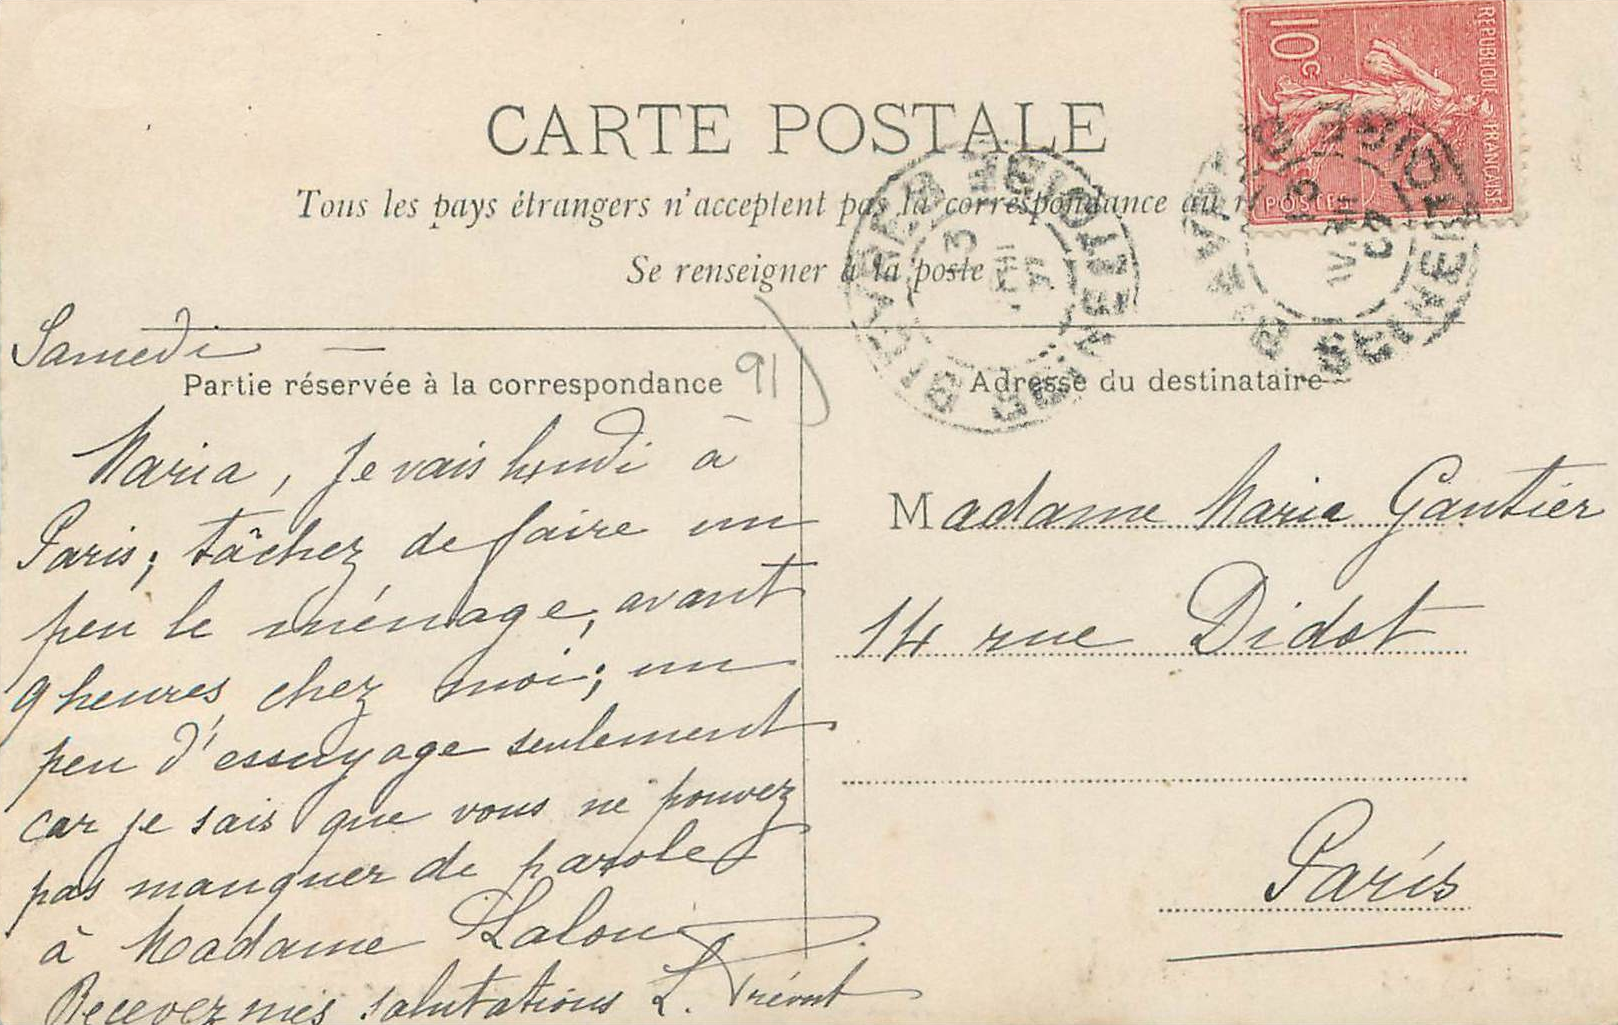 CARTE POSTALE
Tous les pays étrangers n'acceptent pas la correspondance au
Se renseigner à la poste
10c
REPUBLIQUE FRANÇAISE
POSTES
BIEVRES
SEINE ET OISE
Samedi —
Partie réservée à la correspondance
91
Maria, Je vais lundi à
Paris; tâchez de faire un
peu le ménage, avant
9 heures chez moi; un
peu d'essuyage seulement
car je sais que vous ne pouvez
pas manquer de parole
à Madame
Recevez mes salutations L.
Adresse du destinataire
Madame Maria Gautier
14 rue Didot
Paris